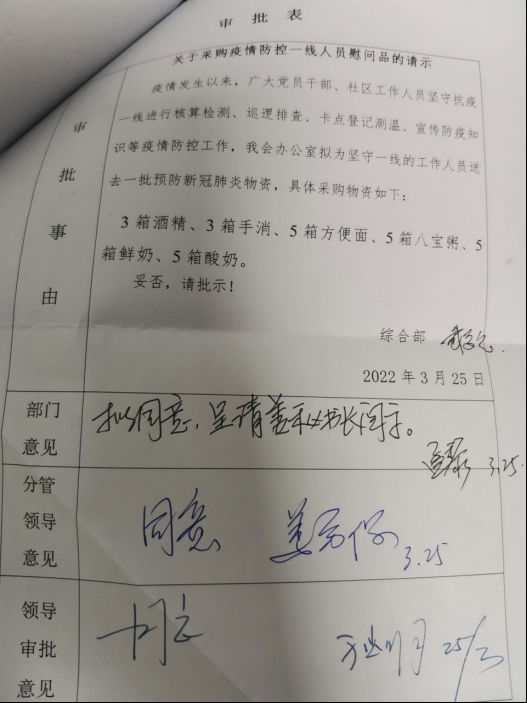 审批表
关于采购疫情防控一线人员慰问品的请示
疫情发生以来，广大党员干部、社区工作人员坚守抗疫
一线进行核算检测、巡逻排查、卡点登记测温、宣传防疫知
识等疫情防控工作，我会办公室拟为坚守一线的工作人员送
去一批预防新冠肺炎物资，具体采购物资如下：
3 箱酒精、3 箱手消、5 箱方便面、5 箱八宝粥、5
箱鲜奶、5 箱酸奶。
妥否，请批示！
审
批
事
由
综合部
2022 年 3 月 25 日
部门
意见
拟同意，呈请姜秘书长阅示。
3.25.
分管
领导
意见
同意
3.25
领导
审批
意见
同意
25/3